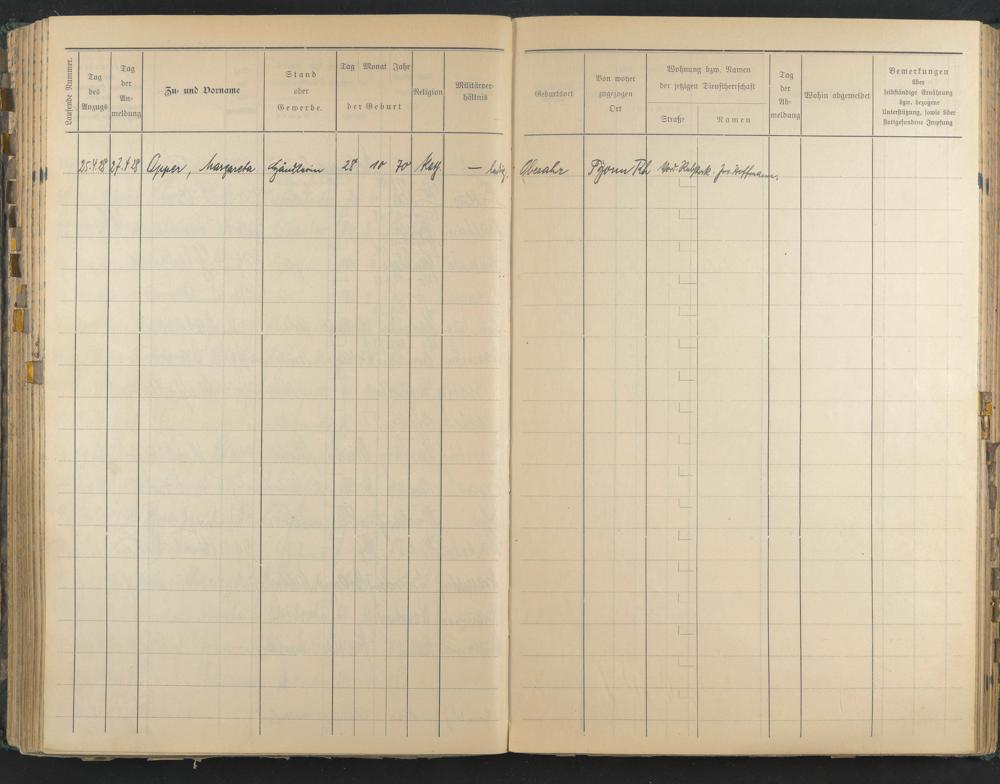 Laufende Nummer.
Tag des Anzugs
Tag der An-meldung
Zu- und Vorname
Stand oder Gewerbe.
Tag Monat Jahr der Geburt
Religion
Militärver-hältnis
Geburtsort
Von woher zugezogen Ort
Wohnung bzw. Namen der jetzigen Dienstherrschaft
Straße
Namen
Tag der Ab-meldung
Wohin abgemeldet
Bemerkungen über selbständige Ernährung bzw. bezogene Unterstützung, sowie über stattgefundene Impfung
25.4.28 27.4.28 Opper, Margareta Händlerin 28 10 70 Kath. — ledig. Oberahr Jos. Hoffmann.